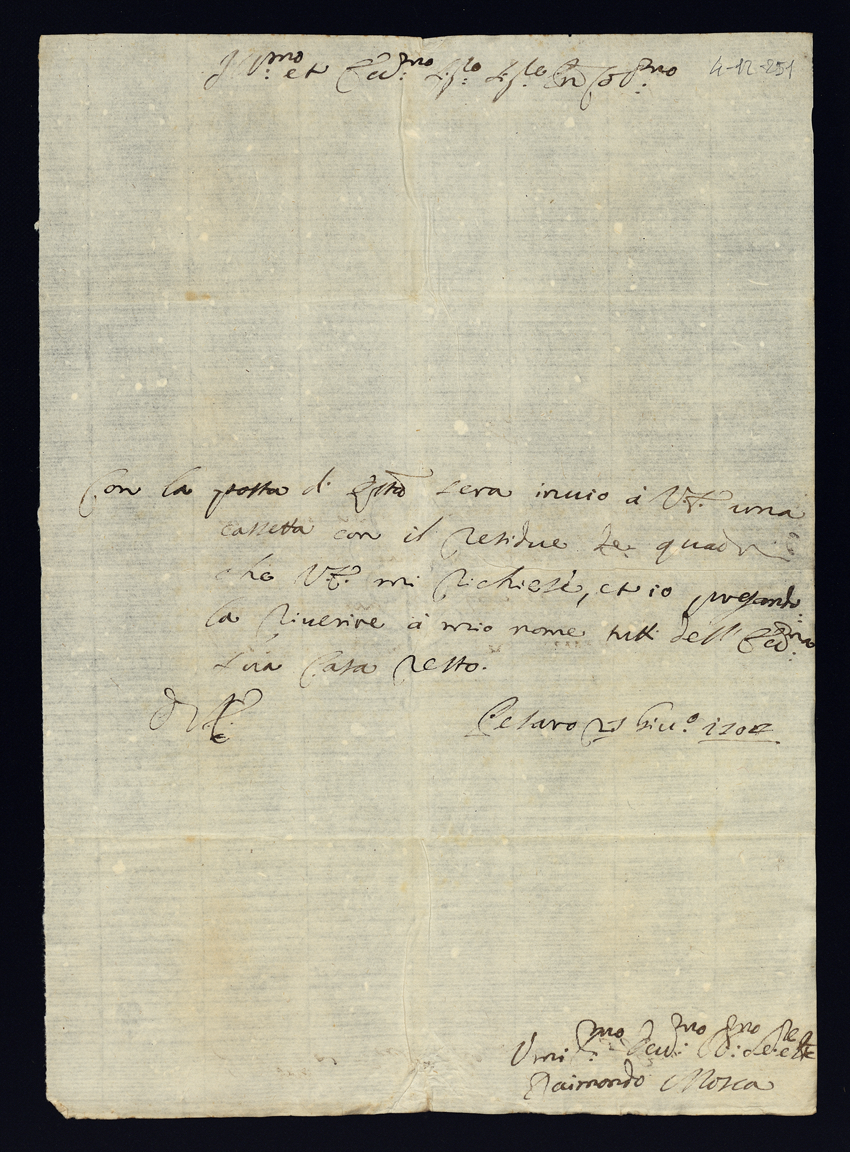 Ill.mo et Ecc.mo Sig.re Sig.re Pn Co: P.mo 4-12-251
Con la posta di q.sta sera inuio à V.E. una
cassetta con il residuo de quadri
che V.E. mi richiese, et io pregando:
la riuerire à mio nome tutti dell' Ecc.ma
sua Casa resto.
D V.E. Pesaro 21 Giu.o 1704
Umi.mo Deu.mo
Raimondo Mosca